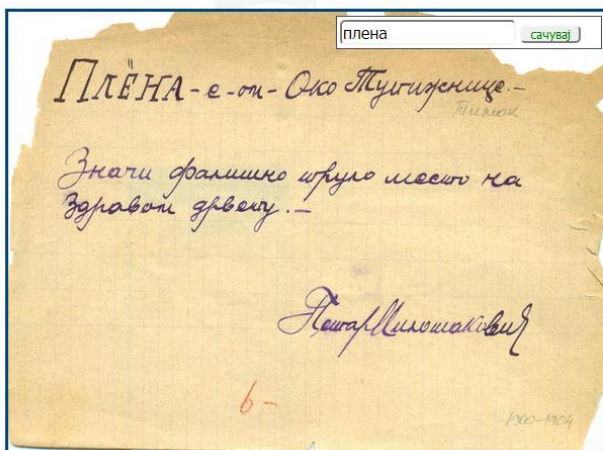 плена
сачувај
ПЛЁНА - е - т - Око Тупижнице. -
Тимок
Значи фалично труло место на
здравом дрвету. -
Петар
6 -
1900-1904